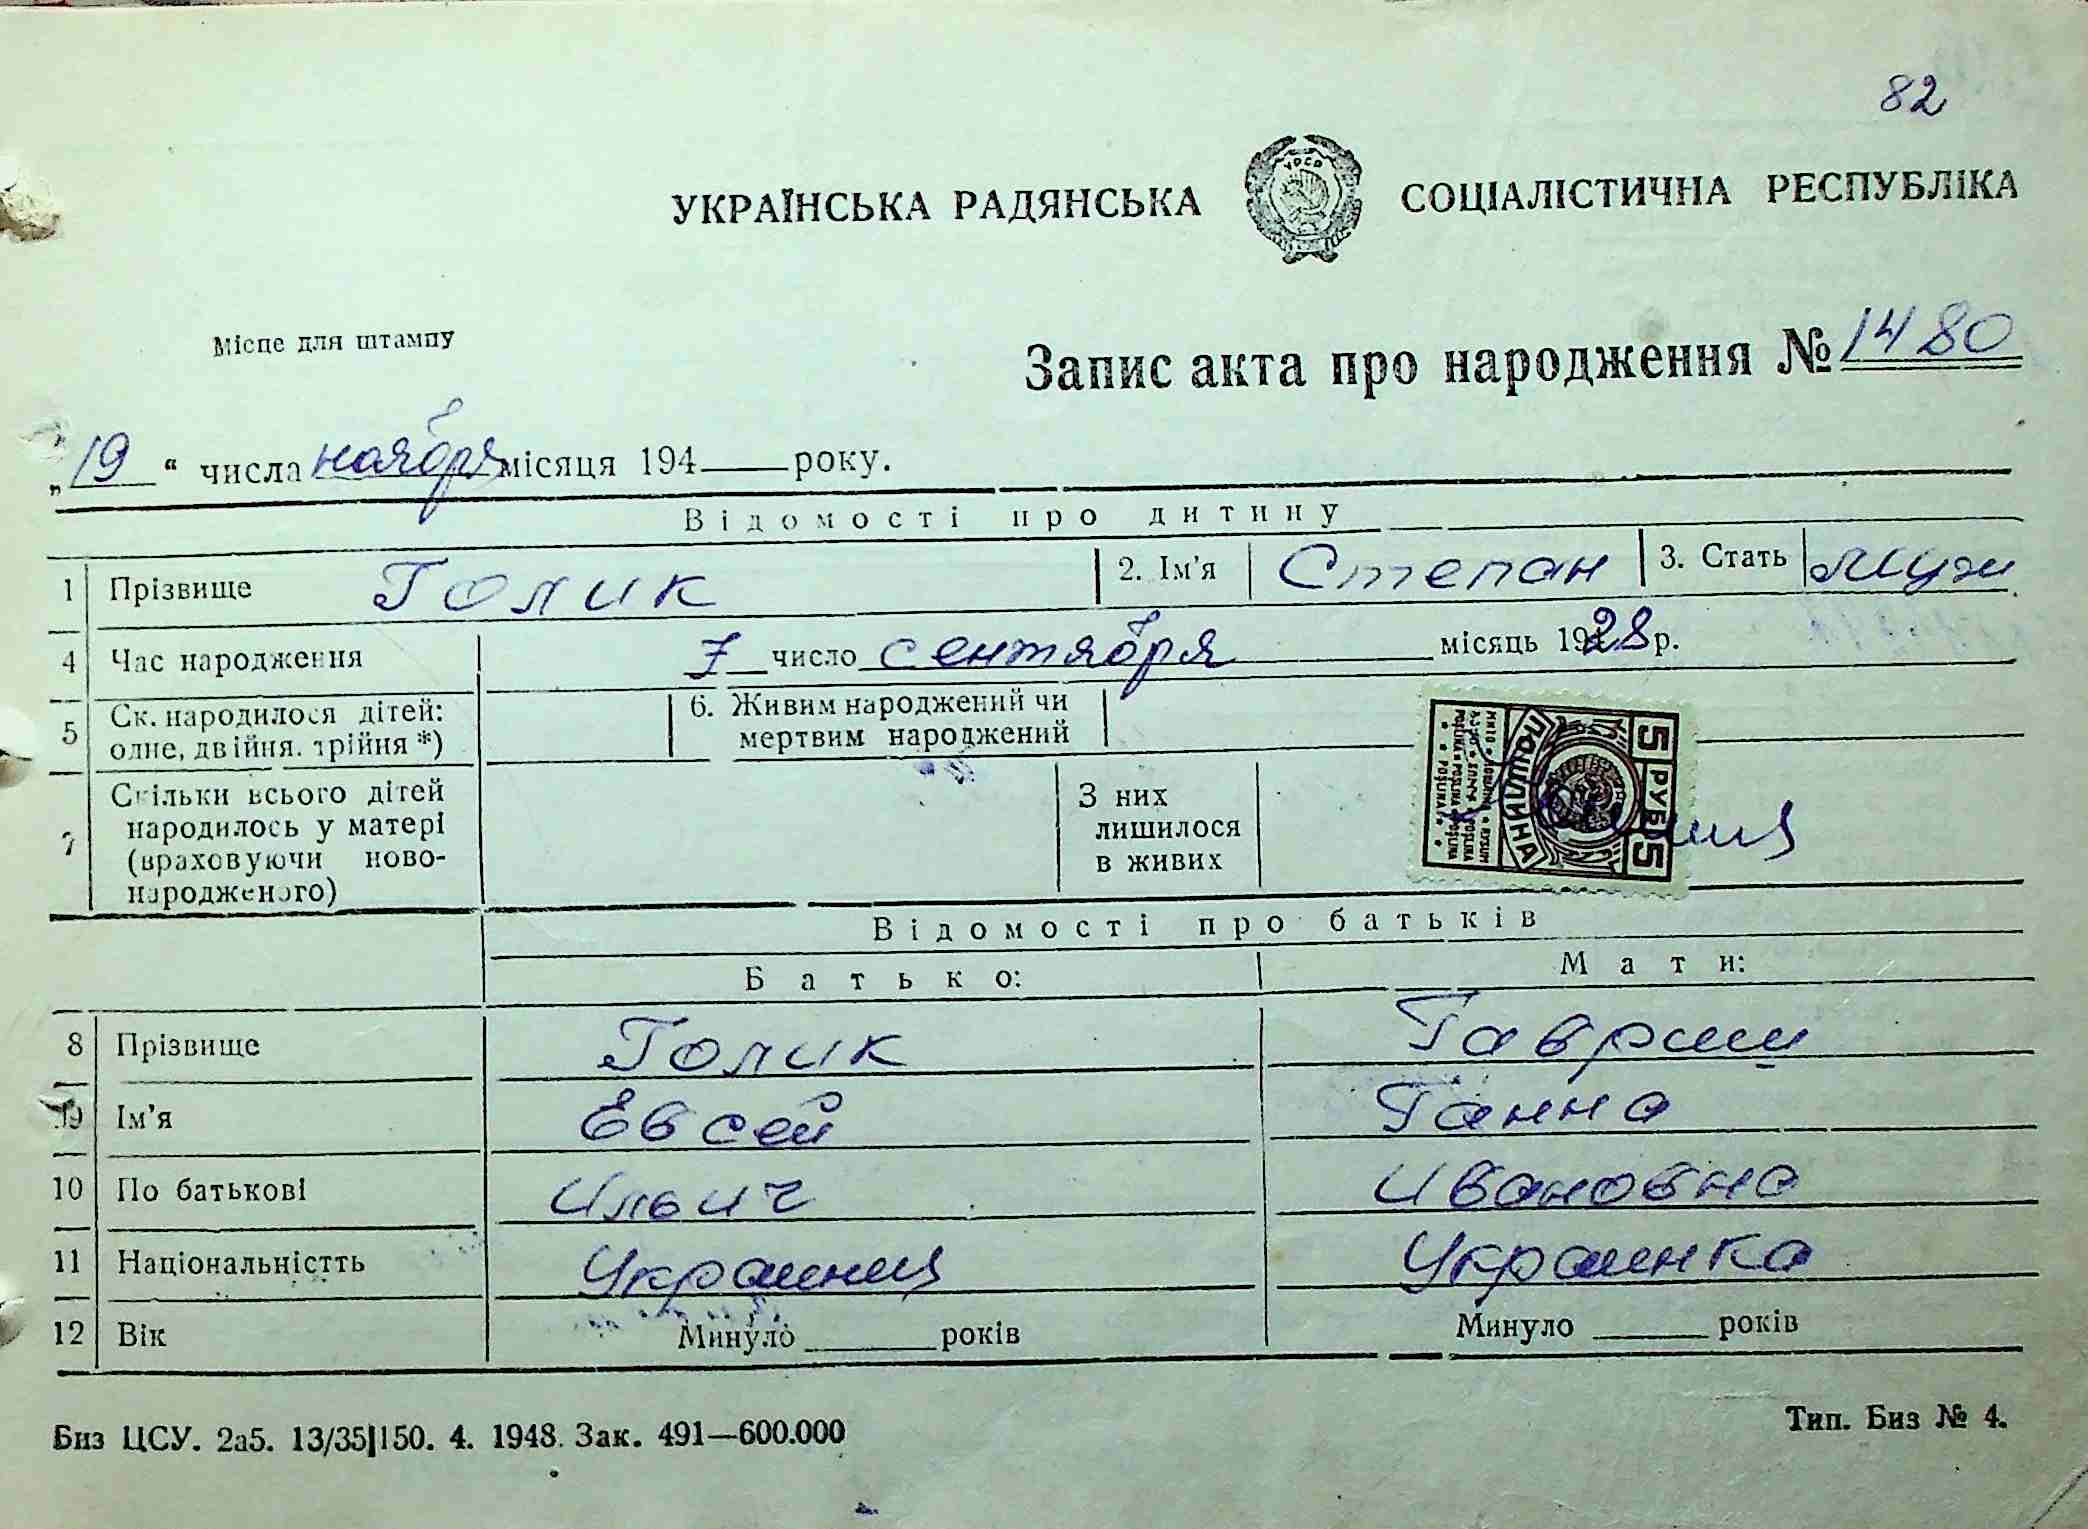 82
УКРАЇНСЬКА РАДЯНСЬКА СОЦІАЛІСТИЧНА РЕСПУБЛІКА
УРСР
Місце для штампу
Запис акта про народження № 1480
„19“ числа ноября місяця 194 року.
Відомості про дитину
1 Прізвище Голик 2. Ім'я Степан 3. Стать муж
4 Час народження 7 число сентября місяць 1928 р.
5 Ск. народилося дітей: одне, двійня, трійня *) 6. Живим народжений чи мертвим народжений
7 Скільки всього дітей народилось у матері (враховуючи новонародженого) З них лишилося в живих
5 РУБ 5
ПОШЛИНА
Відомості про батьків
Батько: Мати:
8 Прізвище Голик Гавриш
9 Ім'я Евсей Ганна
10 По батькові Ильич Ивановна
11 Національністть Украинец Украинка
12 Вік Минуло років Минуло років
Биз ЦСУ. 2а5. 13/35|150. 4. 1948. Зак. 491—600.000 Тип. Биз № 4.